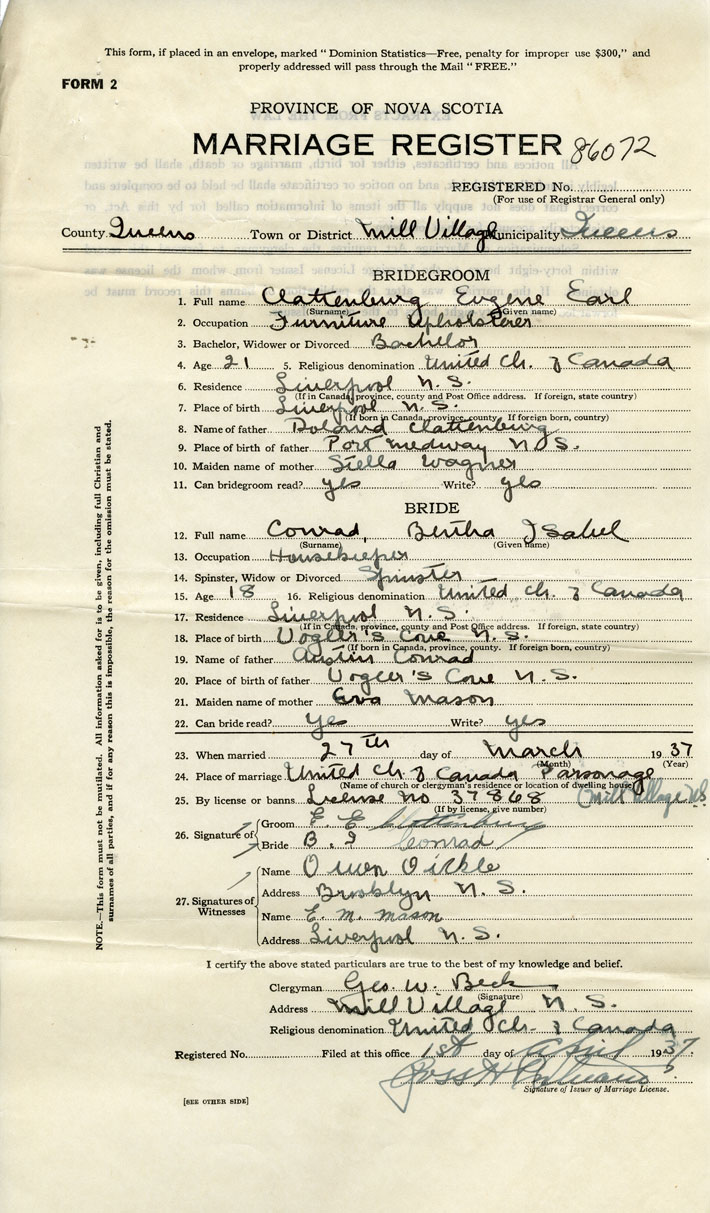 This form, if placed in an envelope, marked " Dominion Statistics—Free, penalty for improper use $300," and
properly addressed will pass through the Mail " FREE."
FORM 2
PROVINCE OF NOVA SCOTIA
MARRIAGE REGISTER 86072
REGISTERED No.
(For use of Registrar General only)
County Queens Town or District Mill Village Municipality Queens
BRIDEGROOM
1. Full name Clattenburg Eugene Earl
(Surname) (Given name)
2. Occupation Furniture Upholsterer
3. Bachelor, Widower or Divorced Bachelor
4. Age 21 5. Religious denomination United Ch. of Canada
6. Residence Liverpool N. S.
(If in Canada, province, county and Post Office address. If foreign, state country)
7. Place of birth Liverpool N. S.
(If born in Canada, province, county. If foreign born, country)
8. Name of father Clattenburg
9. Place of birth of father Port Medway N. S.
10. Maiden name of mother Stella Wagner
11. Can bridegroom read? yes Write? yes
BRIDE
12. Full name Conrad, Bertha Isabel
(Surname) (Given name)
13. Occupation Housekeeper
14. Spinster, Widow or Divorced Spinster
15. Age 18 16. Religious denomination United Ch. of Canada
17. Residence Liverpool N. S.
(If in Canada, province, county and Post Office address. If foreign, state country)
18. Place of birth Vogler's Cove N. S.
(If born in Canada, province, county. If foreign born, country)
19. Name of father Austin Conrad
20. Place of birth of father Vogler's Cove N. S.
21. Maiden name of mother Eva Mason
22. Can bride read? yes Write? yes
23. When married 27th day of March 1937
(Month) (Year)
24. Place of marriage United Ch. of Canada Parsonage
(Name of church or clergyman's residence or location of dwelling house)
Mill Village NS
25. By license or banns License no 37868
(If by license, give number)
26. Signature of Groom E. E. Clattenburg
Bride B. I. Conrad
27. Signatures of Witnesses
Name Owen Oickle
Address Brooklyn N. S.
Name E. M. Mason
Address Liverpool N. S.
I certify the above stated particulars are true to the best of my knowledge and belief.
Clergyman Geo. W. Beck
(Signature)
Address Mill Village N. S.
Religious denomination United Ch. of Canada
Registered No. Filed at this office 1st day of April 1937.
Signature of Issuer of Marriage License.
[SEE OTHER SIDE]
NOTE.—This form must not be mutilated. All information asked for is to be given, including full Christian and
surnames of all parties, and if for any reason this is impossible, the reason for the omission must be stated.